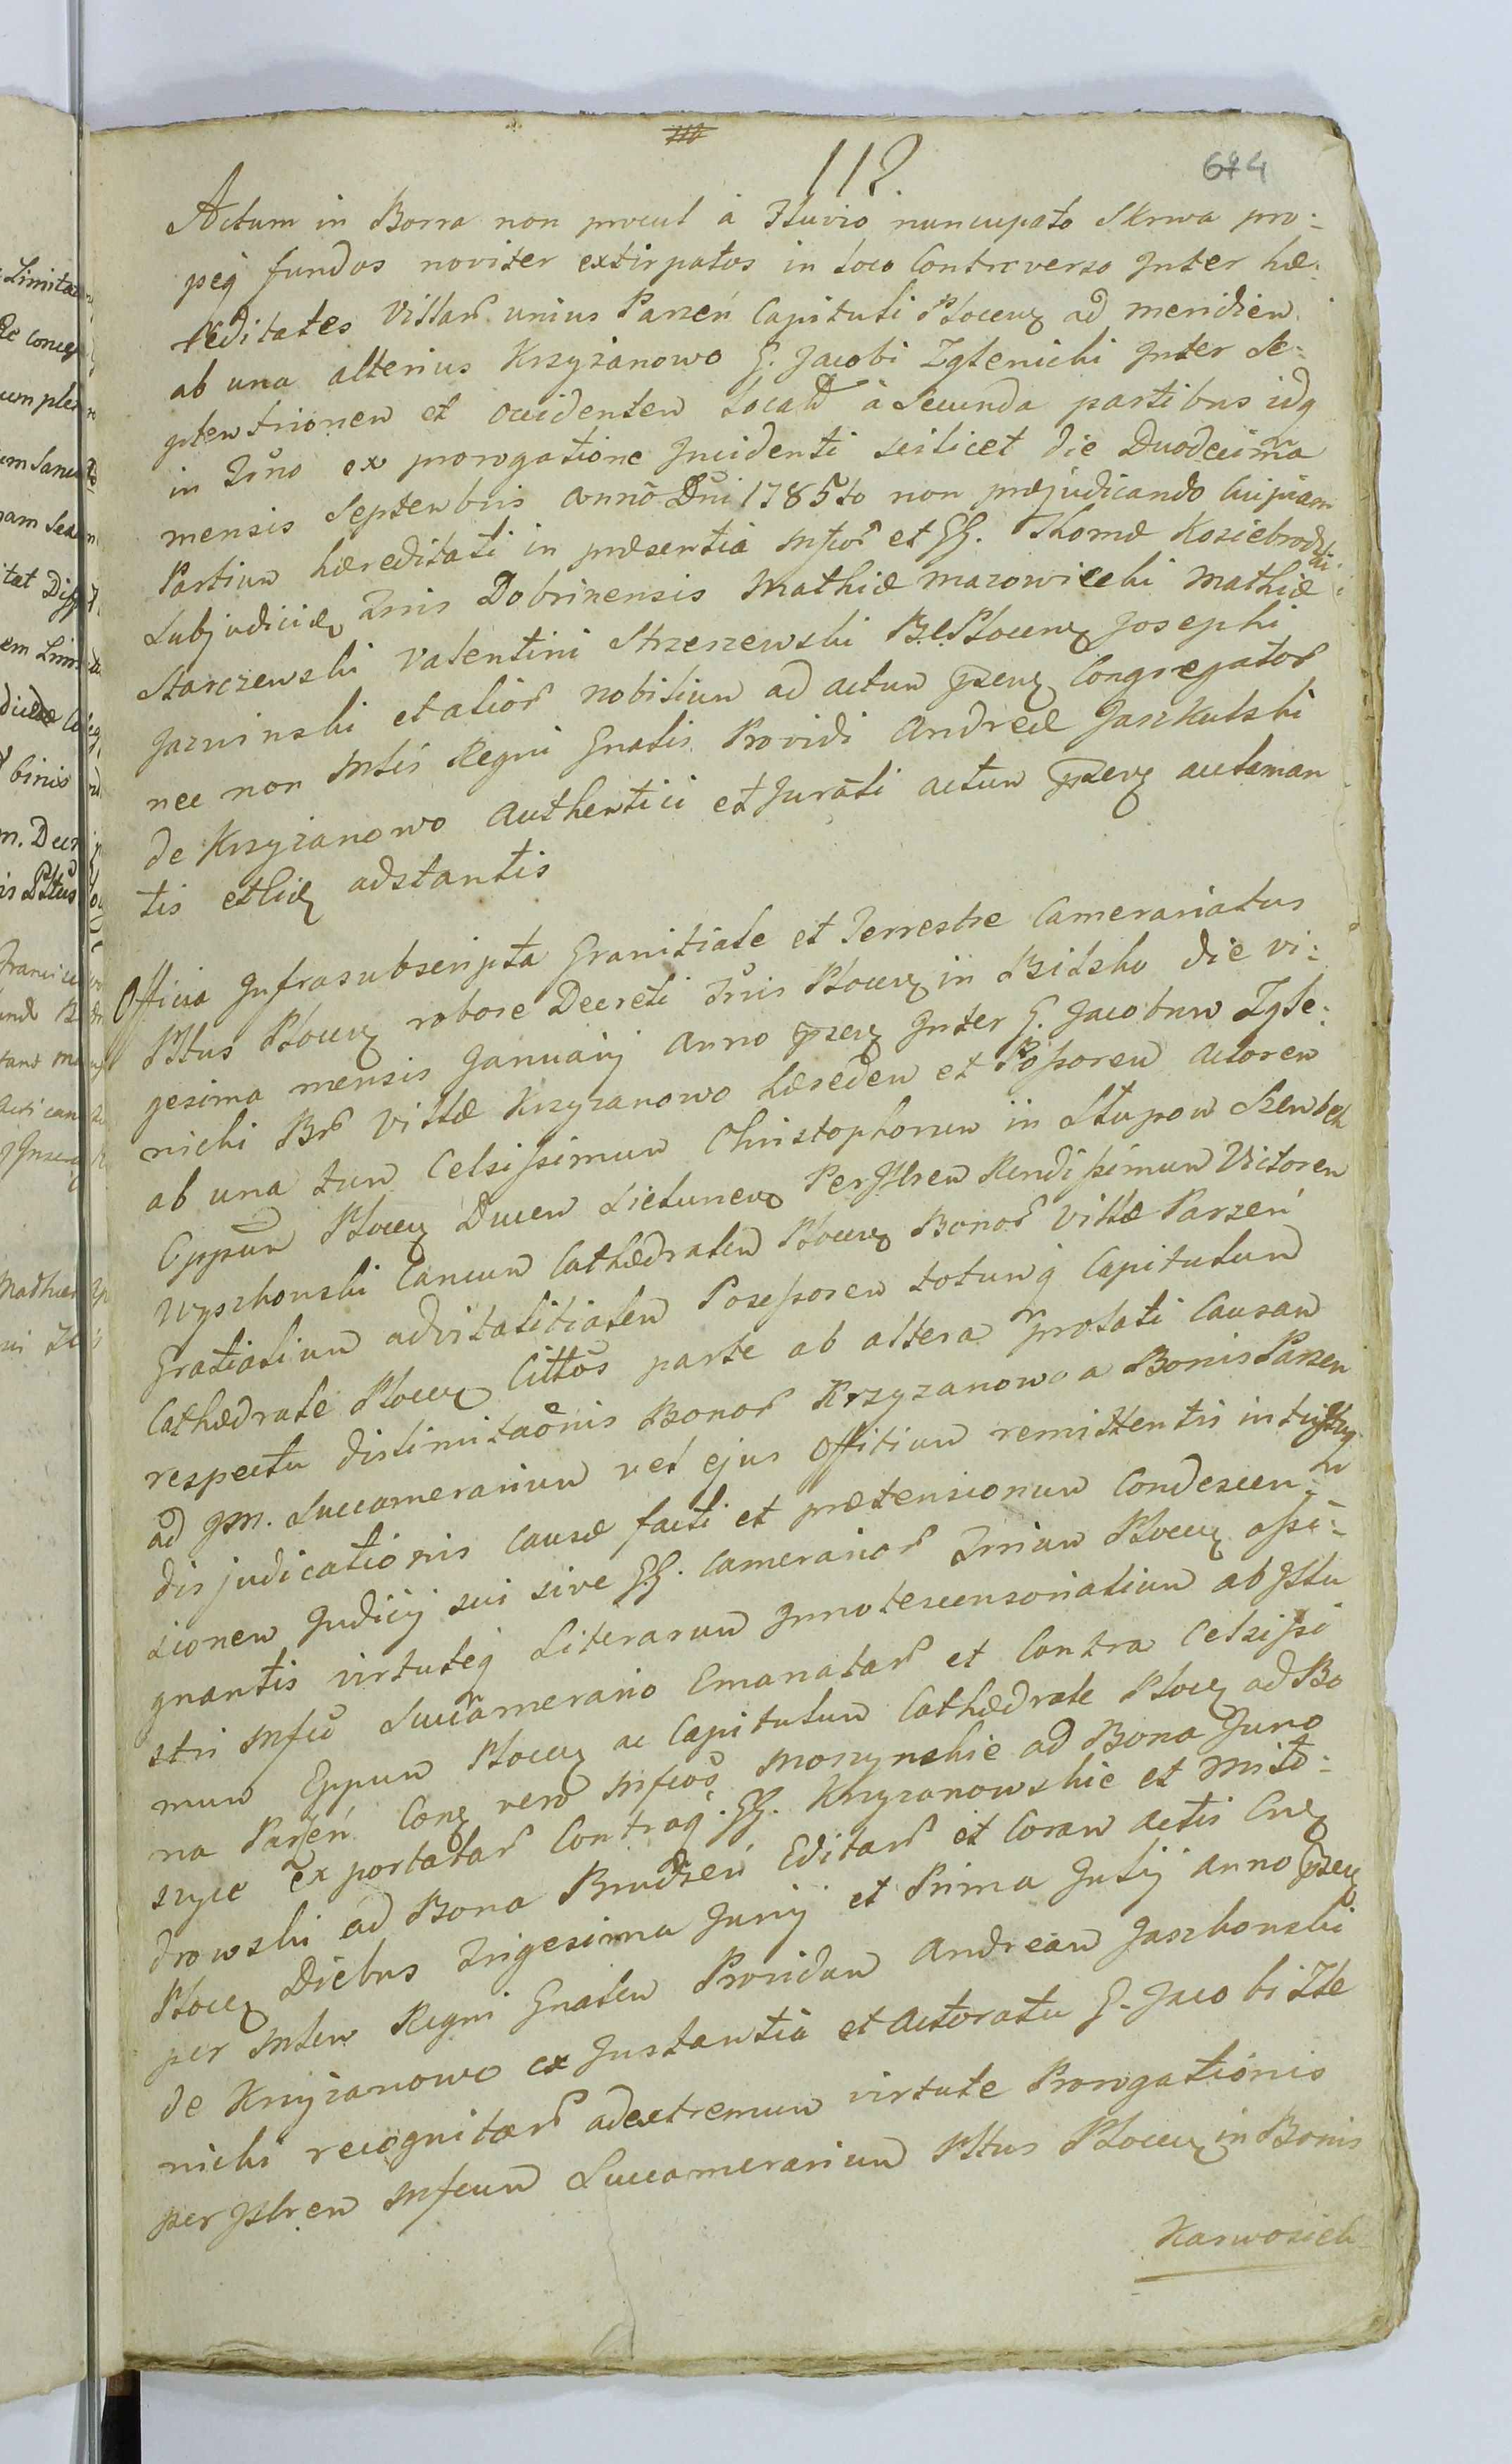 112.
674
Actum in Borra non procul a Fluvio nuncupato Skrwa pro:
peq fundos noviter extirpatos in Loco Controverso Inter hæ:
reditates Villar unius Parzeń Capituli Plocen ad meridiem
ab una alterius Krzyżanowo G. Jacobi Zglenicki Inter Se:
ptemtrionem et occidentem Locat à Secunda partibus idq
in Trno ex prorogatione Incidenti scilicet die Duodecima
mensis Septembris Anno Dni 1785to non præjudicando Cuipiam
Partium hæreditati in præsentia Mfcor et GG. Thomæ Koziebrodzki
Subjudicis Trris Dobrinensis Mathiæ Mazowiecki Mathiæ
Starczewski Valentini Strzeszewski B. C. Plocen Josephi
Jazwinski et alior Nobilium ad actum psen Congregator
nec non Mlis Regni Gnalis Providi Andreæ Jaszkulski
de Krzyżanowo Authentici et Jurati actum psen acclaman
tis etlic adstantis
Officia Infrascripta Granitiale et Terrestre Camerariatus
Pltus Plocen robore Decreti Trris Plocen in Bielsko die vi:
gesima mensis Januarij Anno psen Inter G. Jacobum Zgle:
nicki Br Villæ Krzyzanowo hæredem et Posorem Actorem
ab una tum Celsissimum Christophorum in Słupow Szembek
Eppum Plocen Ducem Sielunen Perjllrem Rendissimum Victorem
Wyszkonski Cancum Cathedralem Plocen Bonor Villæ Parzeń
Gratialium advitalitialem Posessorem totumq Capitulum
Cathedrale Plocen Cittos parte ab altera prolati Causam
respectu dislimitaonis Bonor Krzyzanowo a Bonis Parzen
ad GM. Succamerarium vel ejus Offitium remittentis
disjudicationis Causæ facti et prætensionum Condescen:
sionem Judicij sui sive GG. Camerarior Trrium Plocen assi:
gnantis virtuteq Literarum Innotescensorialium ab Illu
stri Mfco Succamerario Emanatar et Contra Celsissi
mum Eppum Plocen ac Capitulum Cathedrale Plocen ad Bo
na Parzeń Conq vero Mfcos Moszynskie ad Bona Juno
szyce exportatar Contraq GG. Krzyzanowskie et Mło:
drowski ad Bona Brudzeń Editar et Coram Actis Cnx
Plocen Diebus Trigesima Junij et Prima Julij anno psen
per Mlem Regni Gnalem Providum Andream Jaszkonski
de Krzyzanowo ex Instantia et Actoratu G. Jacobi Zle
nicki recognitar adextremum virtute Prorogationis
per Jllrem Mfcum Succamerarium Pltus Plocen in Bonis
Karwosiek